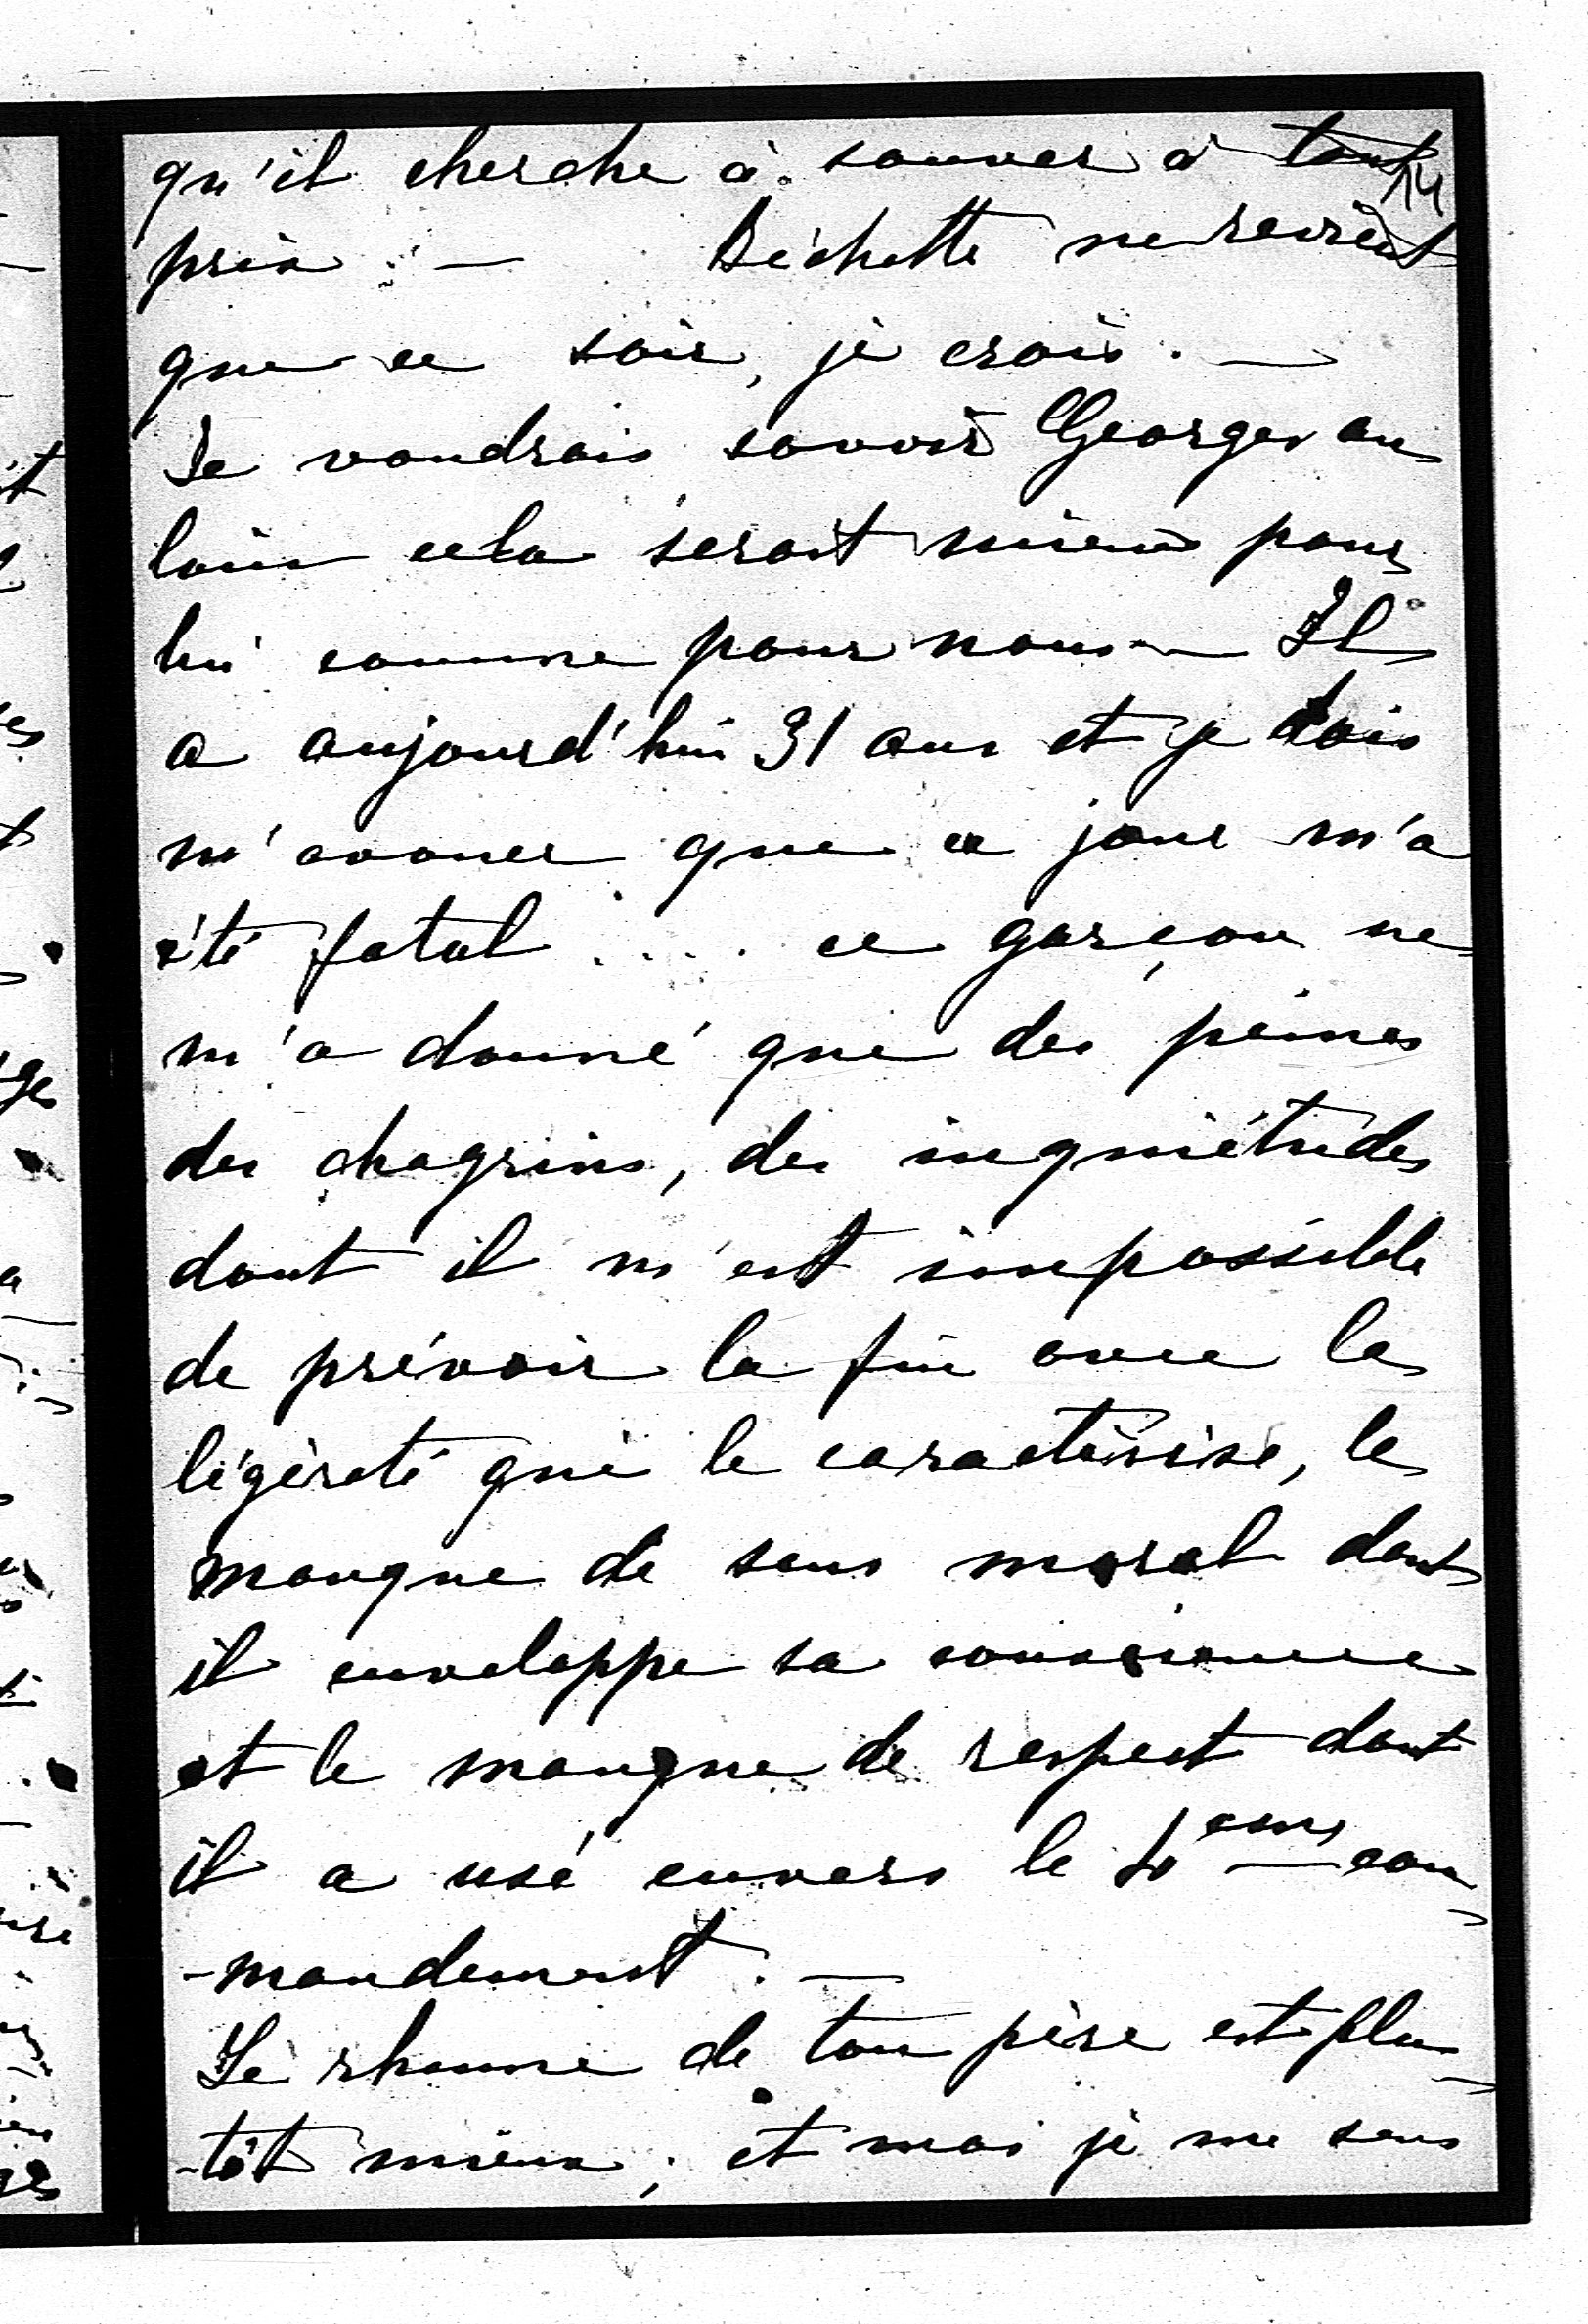 qu'il cherche à sauver à tout
14
prix. — Béchette ne revient
que ce soir, je crois. —
Je voudrais savoir Georges au
loin cela serait mieux pour
lui comme pour nous — Il
a aujourd'hui 31 ans et je dois
m'avouer que ce jour m'a
été fatal .... ce garçon ne
m'a donné que des peines
des chagrins, des inquiétudes
dont il m'est impossible
de prévoir la fin avec la
légèreté qui le caractérise, le
manque de sens moral dont
il enveloppe sa conscience
et le manque de respect dont
il a usé envers le com-
-mandement. —
Le rhume de ton père est plu-
-tôt mieux ; et moi je me sens